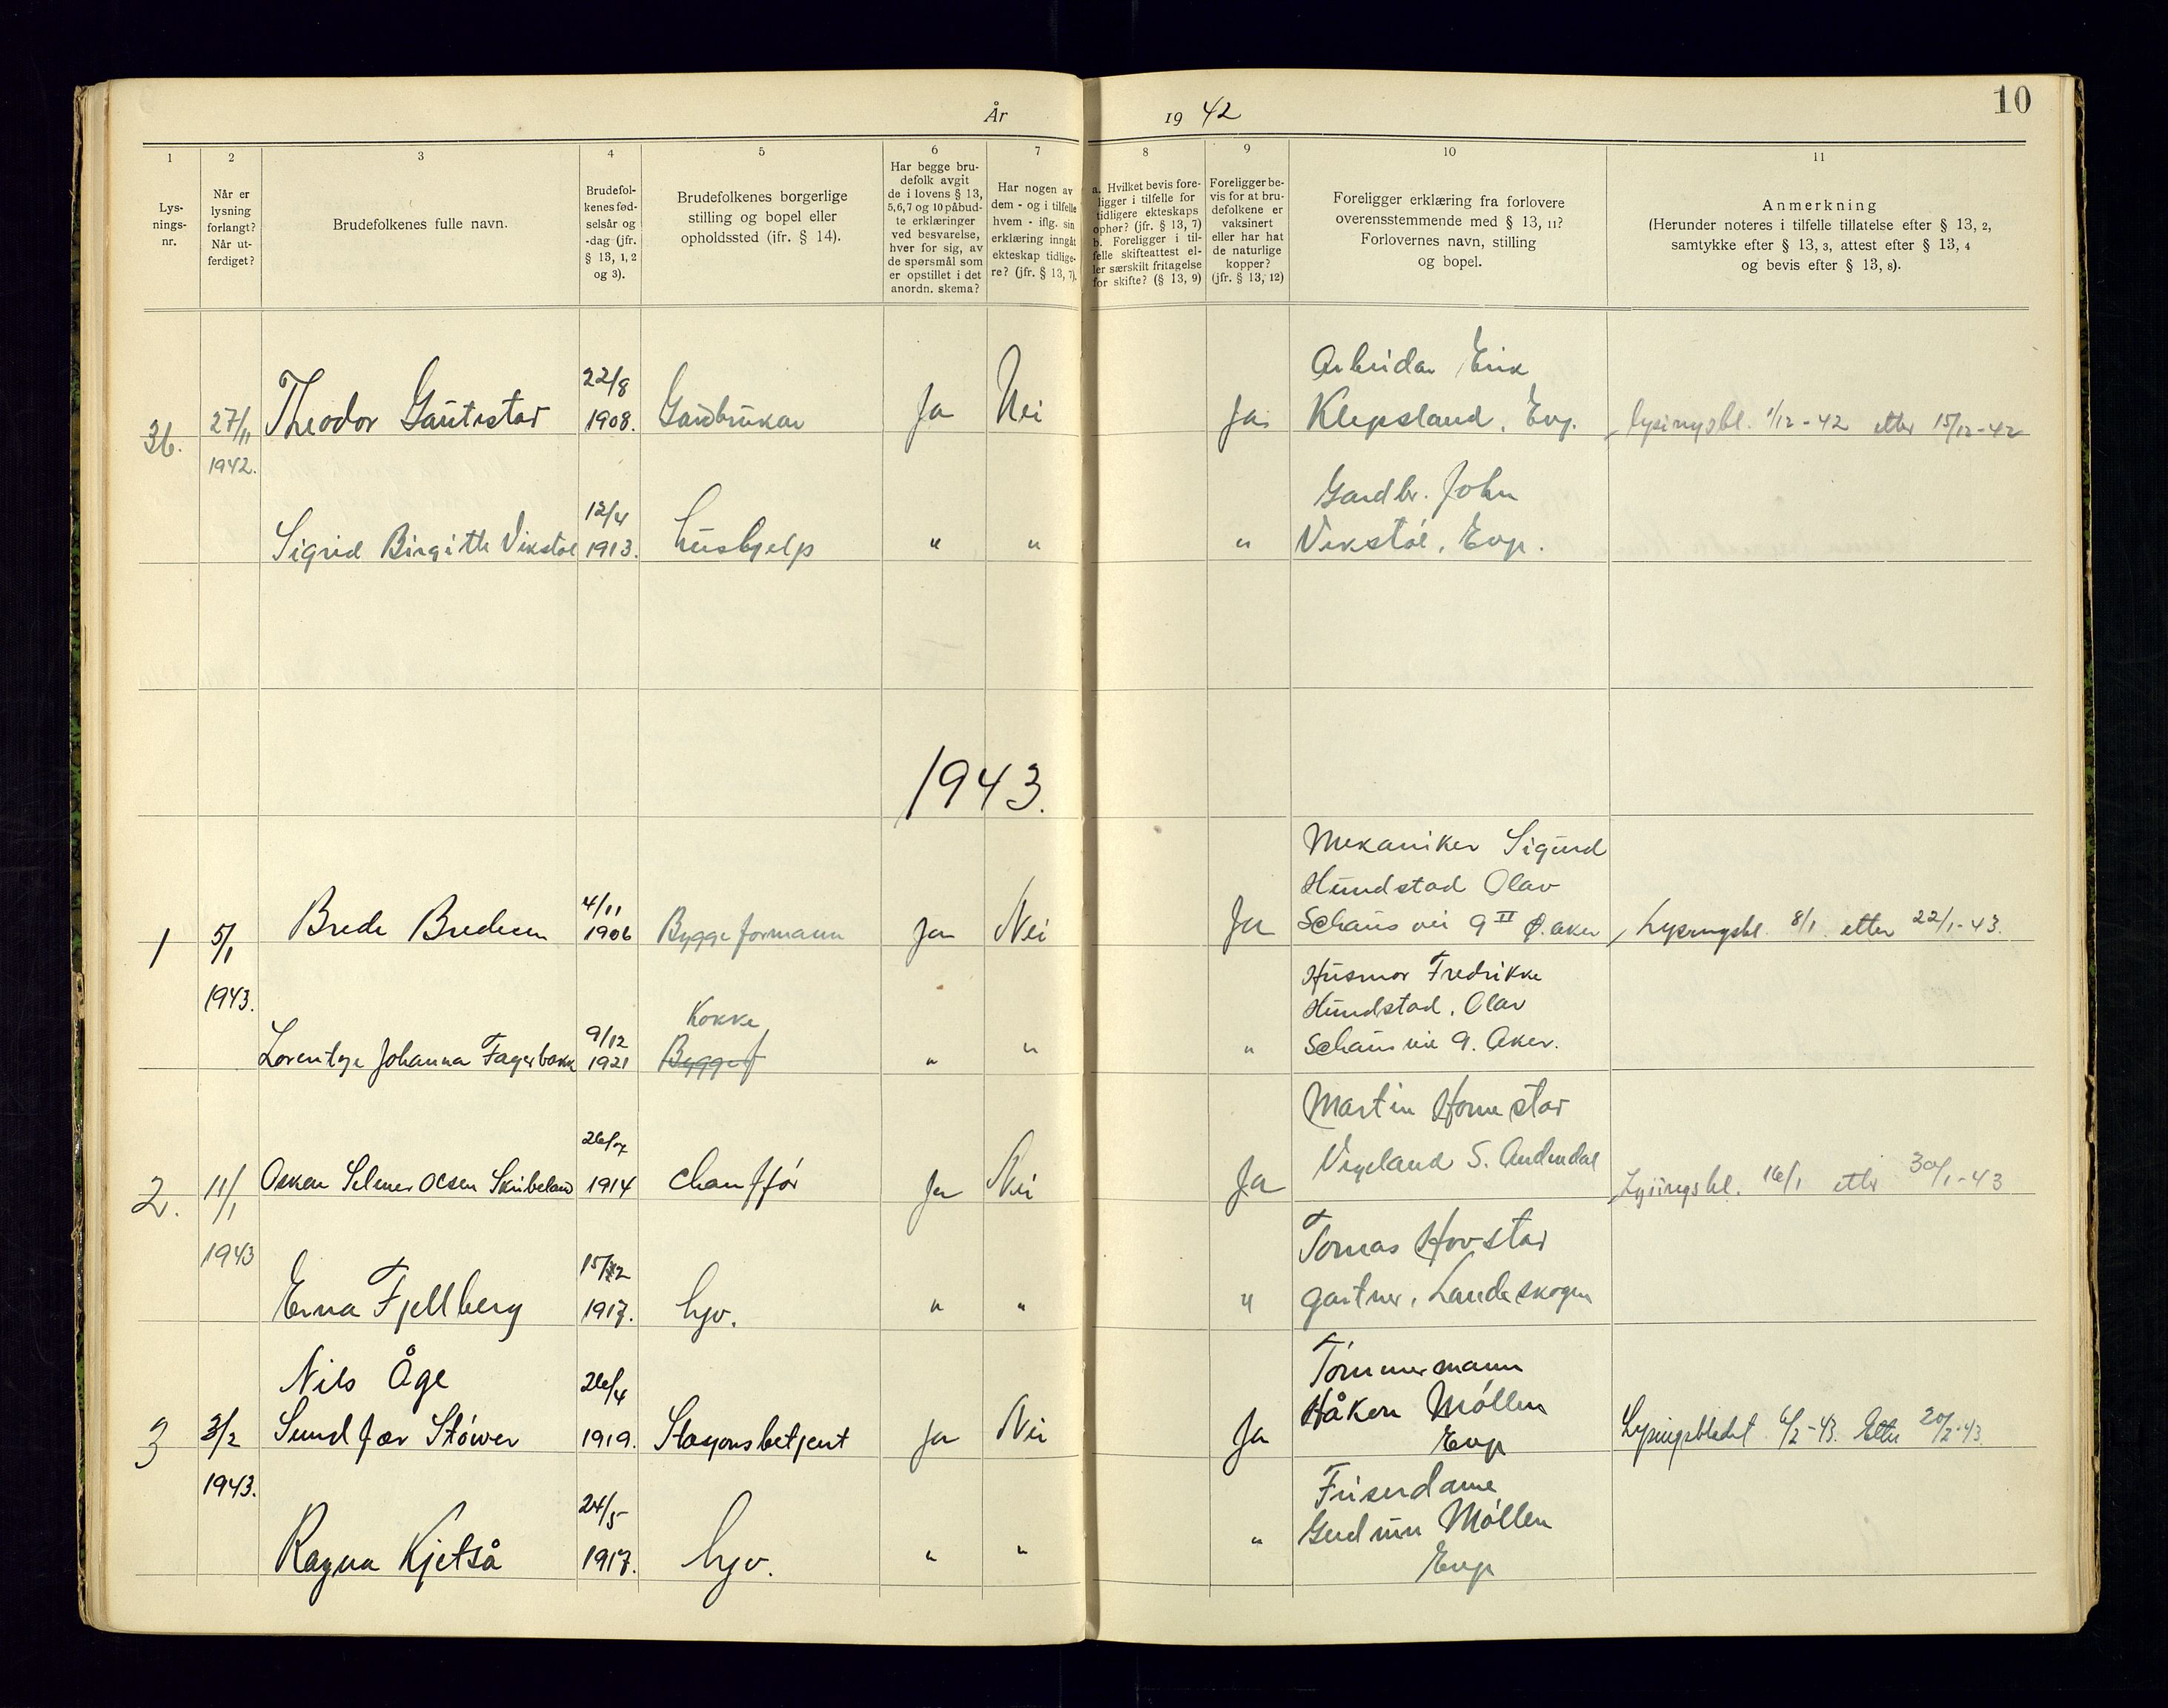 År 1942
10
1
2
3
4
5
6
7
8
9
10
11
Lys-
nings-
nr.
Når er
lysning
forlangt?
Når ut-
ferdiget?
Brudefolkenes fulle navn.
Brudefol-
kenes fød-
selsår og
-dag (jfr.
§ 13, 1, 2
og 3).
Brudefolkenes borgerlige
stilling og bopel eller
opholdssted (ifr. § 14).
Har begge bru-
defolk avgit
de i lovens § 13,
5,6,7 og 10 påbud-
te erklæringer
ved besvarelse,
hver for sig, av
de spørsmål som
er opstillet i det
anordn. skema?
Har nogen av
dem - og i tilfelle
hvem - iflg. sin
erklæring inngåt
ekteskap tidlige-
re? (jfr. § 13, 7).
a. Hvilket bevis fore-
ligger i tilfelle for
tidligere ekteskaps
ophør? (jfr. § 13, 7)
b. Foreligger i til-
felle skifteattest el-
ler særskilt fritagelse
for skifte? (§ 13, 9)
Foreligger be-
vis for at bru-
defolkene er
vaksinert
eller har hat
de naturlige
kopper?
(jfr. § 13, 12)
Foreligger erklæring fra forlovere
overensstemmende med § 13, 11?
Forlovernes navn, stilling
og bopel.
Anmerkning
(Herunder noteres i tilfelle tillatelse efter § 13, 2,
samtykke efter § 13, 3, attest efter § 13, 4
og bevis efter § 13, 8).
36.
27/11
1942.
Theodor Gautestad
22/8
1908.
Gardbrukar
Ja
Nei
Ja
Arbeidar Erik
Klepsland, Evj.
lysingsbl. 1/12-42 etter 15/12-42
Sigrid Birgitte Vikstøl
12/4
1913.
Hushjelp
"
"
"
Gardbr. John
Vikstøl, Evje.
1943.
1
5/1
1943.
Brede Bredesen
4/11
1906
Byggeformann
Ja
Nei
Ja
Mekaniker Sigurd
Hundstad Olav
Schaus vei 9 II Ø. aker
Lysningsbl. 8/1. etter 22/1-43.
Lorentze Johanna Fagerbakk
9/12
1921
Kokke
Byggef
"
"
"
Husmor Fredrikke
Hundstad, Olav
Schaus vei 9. Aker.
2.
11/1
1943
Oskar Selmer Olsen Skibeland
26/7
1914
Chauffør
Ja
Nei
Ja
Martin Homestad
Vigeland S. Audnedal
Lysingsbl. 16/1 etter 30/1-43
Erna Fjellberg
15/12
1917.
hjv.
"
"
"
Tomas Hovstad
gartner, Landeskogen
3
3/2
1943.
Nils Åge
Sundfær Støwer
26/4
1919.
Stasjonsbetjent
Ja
Nei
Ja
Tømmermann
Håkon Møllen
Evje
Lysingsbladet 6/2-43. Etter 20/2-43.
Ragna Kjetså
24/5
1917.
hjv.
"
"
"
Friserdame
Gudrun Møllen
Evje